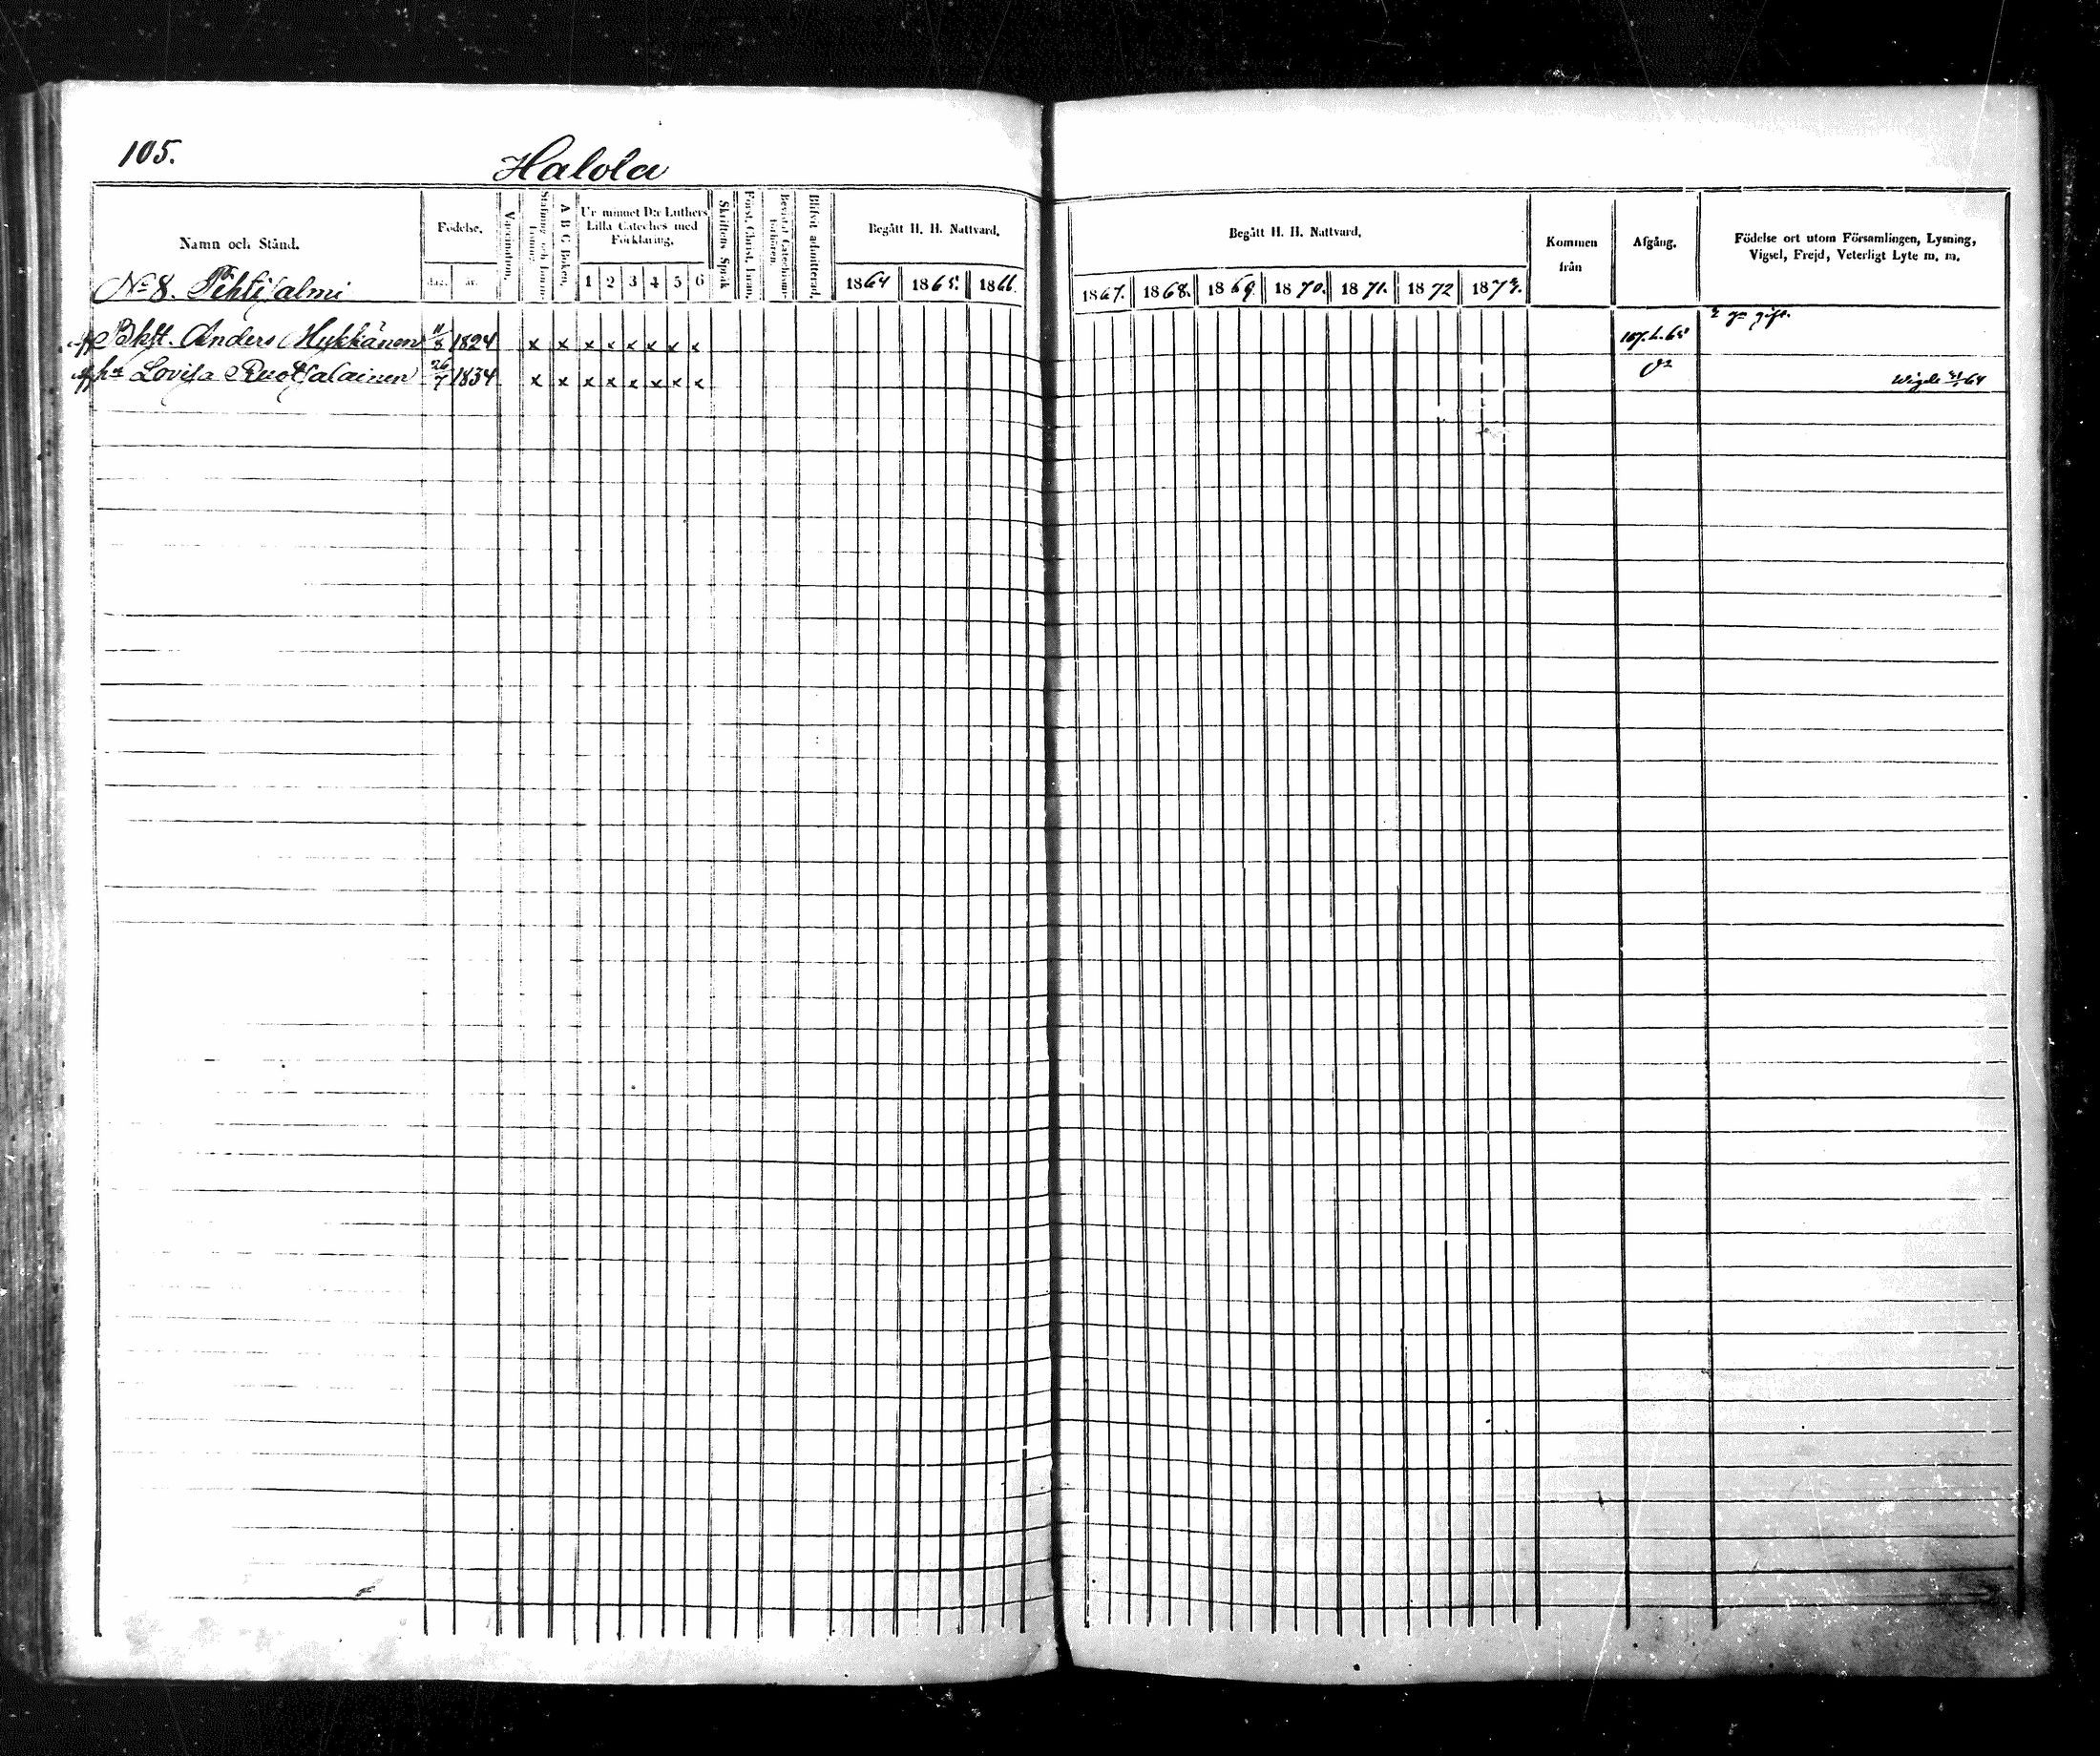 105.
Halola
Namn och Stånd.
Födelse.
dag. år.
Vaccination.
A B C Boken.
Ur minnet D:r Luthers
Lilla Cateches med
Förklaring.
1 2 3 4 5 6
Skriftens Språk
Först. Christ. Inran.
Bevist. Catechismi
förhören.
Blifvit admitterad.
Begått H. H. Nattvard.
1864 1865. 1866.
Begått H. H. Nattvard.
1867. 1868. 1869. 1870. 1871. 1872 1873.
Kommen
från
Afgång.
Födelse ort utom Församlingen, Lysning,
Vigsel, Frejd, Veterligt Lyte m. m.
No 8. Pihtisalmi
2 gn gift.
Bkst. Anders Mykkänen 11/8 1824 x x x x x x x x
hu Lovisa Ruotsalainen 26/7 1834 x x x x x x x x
Wigde 64